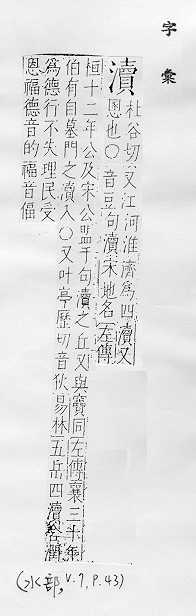 字彙
瀆 杜谷切又江河淮濟爲四瀆又
溷也○音豆句瀆宋地名左傳
桓十二年公及宋公盟于句瀆之丘又與竇同左傳襄三十年
伯有自墓門之瀆入○又叶亭歷切音狄易林五岳四瀆潤
爲德行不失理民受
恩福德音的福音偪
(水部, V.7, P.43)